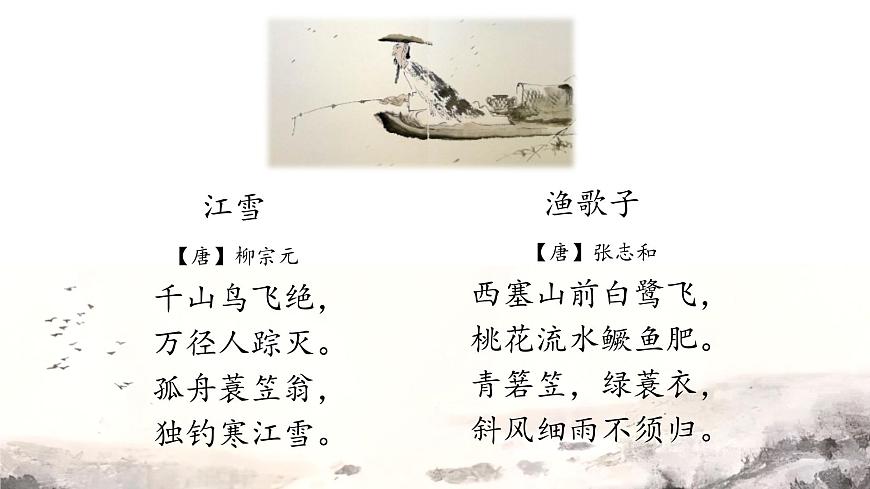 江雪
【唐】柳宗元
千山鸟飞绝，
万径人踪灭。
孤舟蓑笠翁，
独钓寒江雪。
渔歌子
【唐】张志和
西塞山前白鹭飞，
桃花流水鳜鱼肥。
青箬笠，绿蓑衣，
斜风细雨不须归。